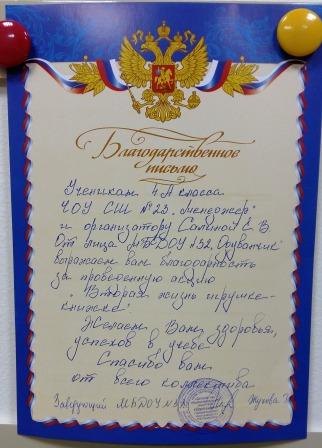 Благодарственное
письмо
Ученикам 4А класса
ЧОУ СШ №23 "Менеджер"
и организатору Салиной Е.В.
От лица МБДОУ №52 "Одуванчик"
выражаем вам благодарность
за проведенную акцию
"Вторая жизнь игрушке-
книжке"
Желаем Вам здоровья,
успехов в учебе
Спасибо вам
от всего коллектива
Заведующий МБДОУ №52